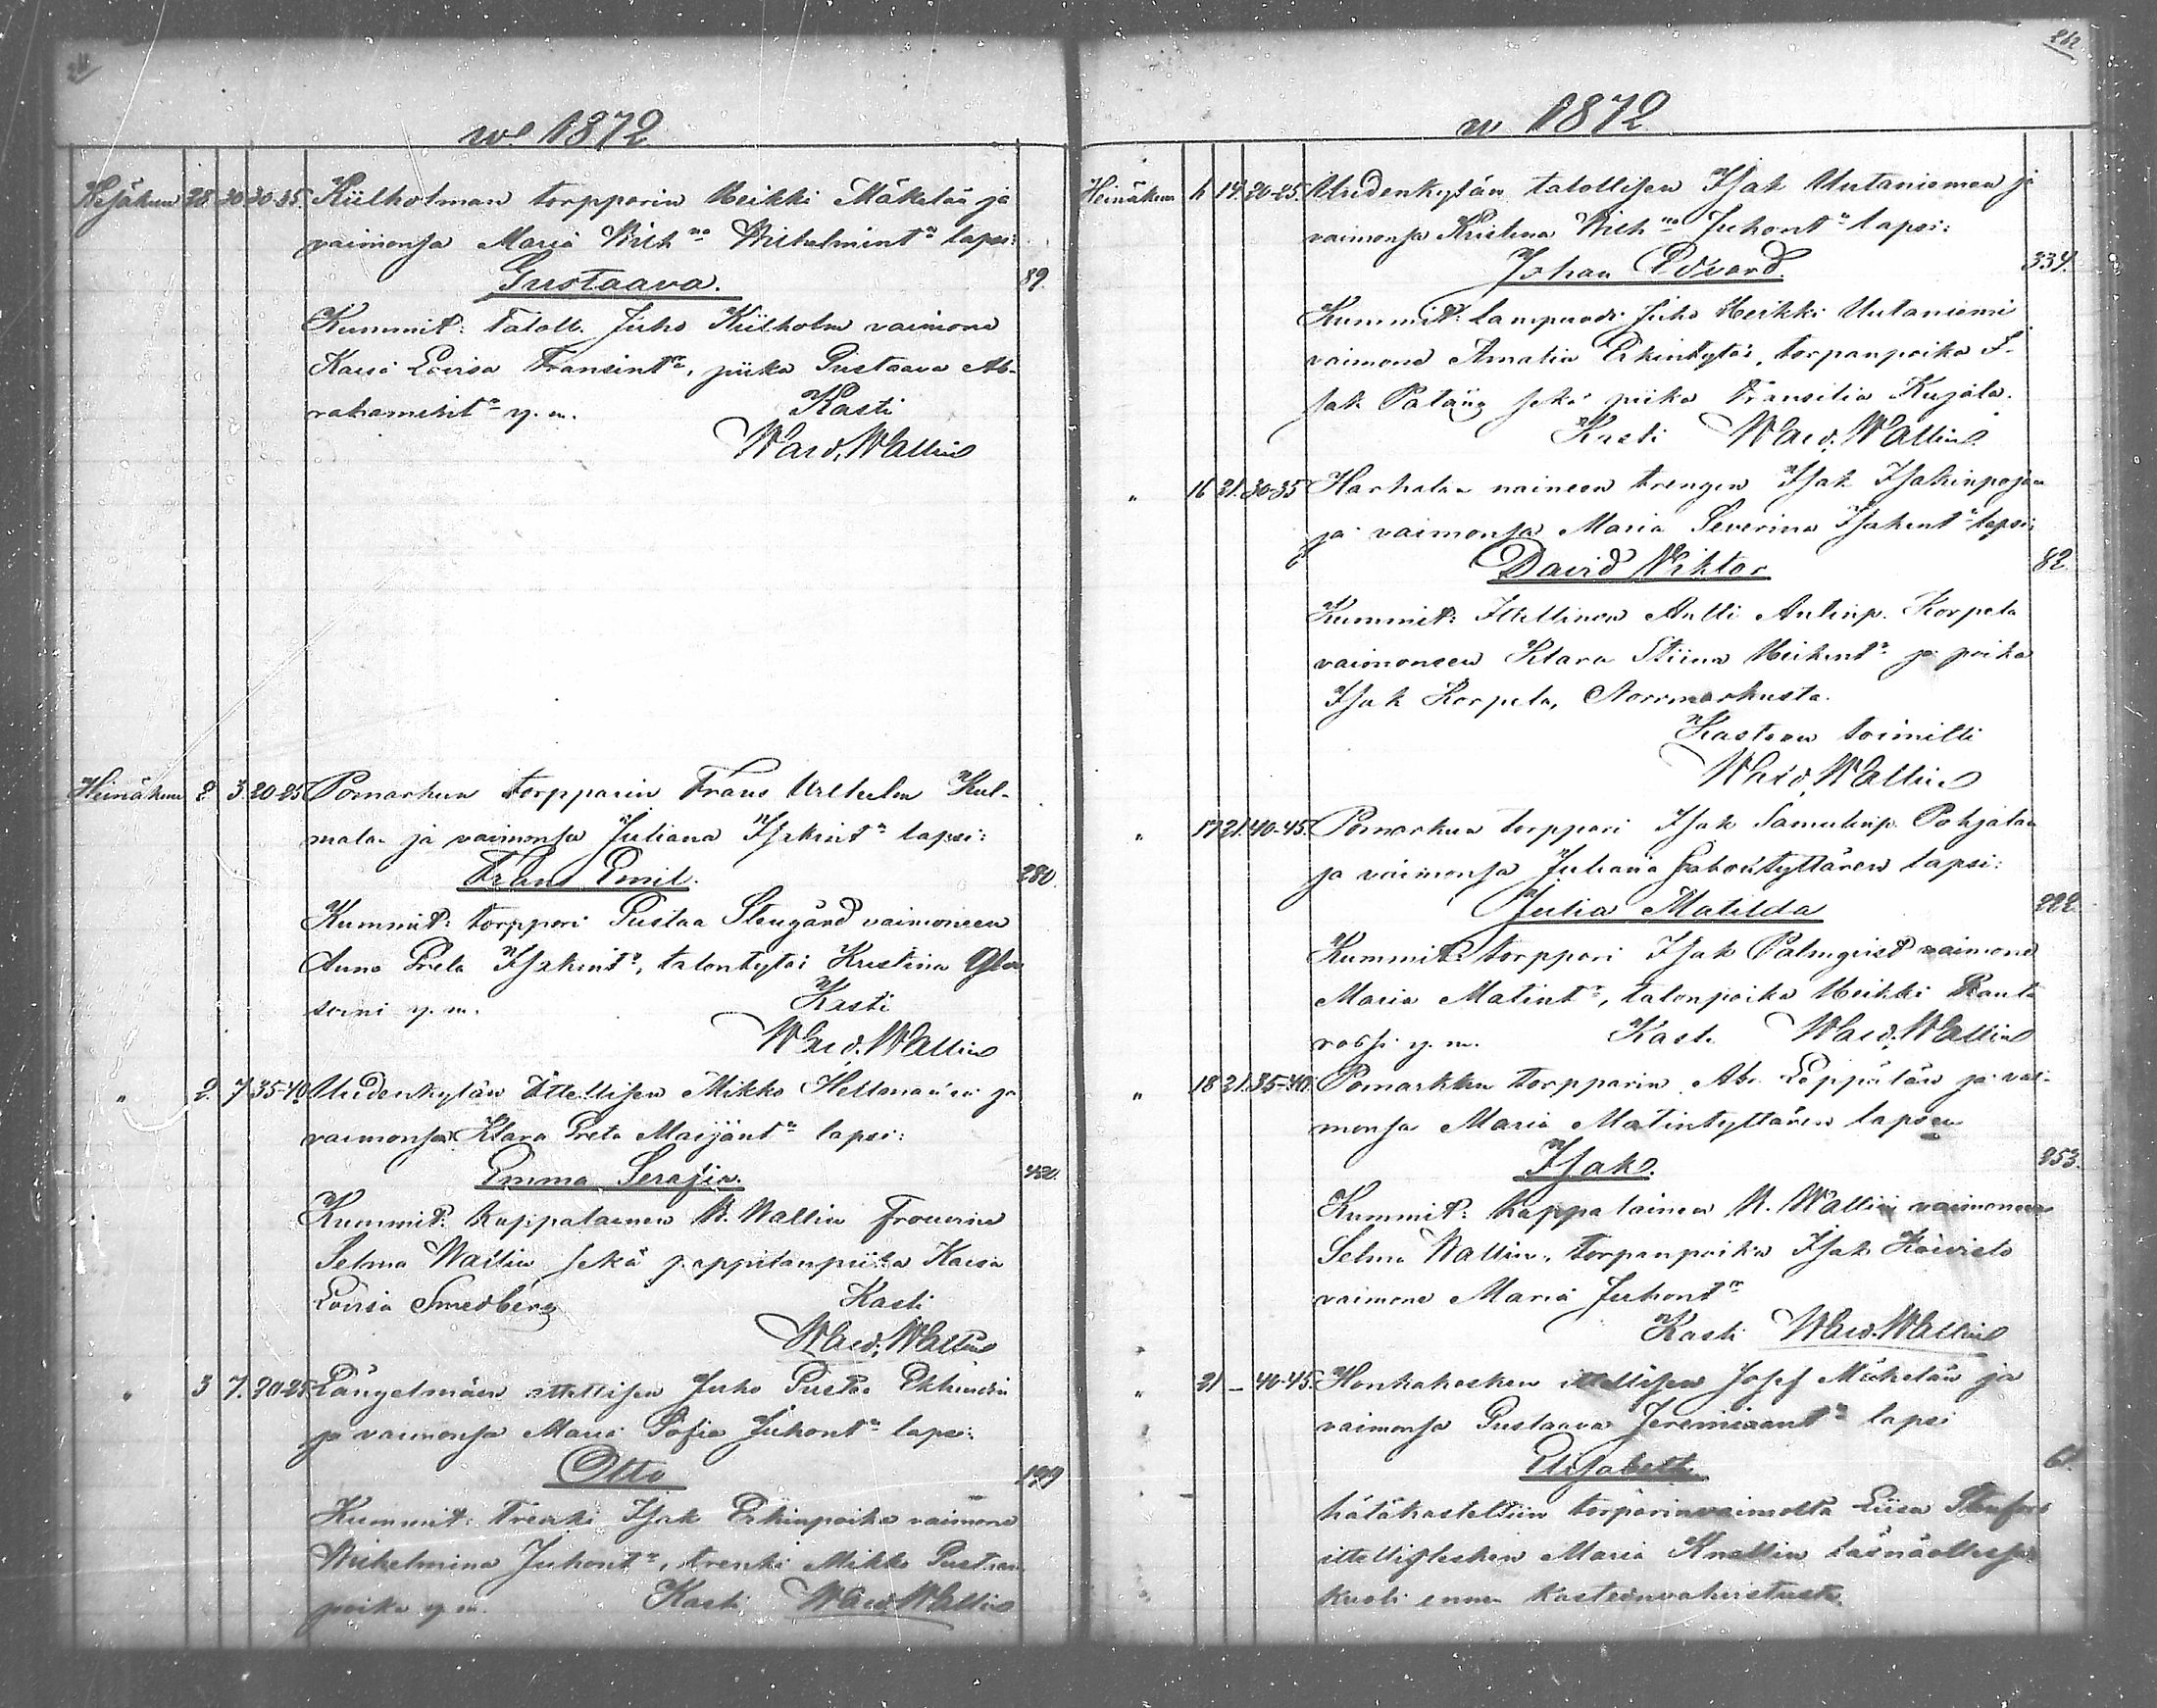 w. 1872
Kesäkuu 28 30 30-35. Kiilholman torpparin Heikki Mäkelän ja
vaimonsa Maria Wilh:na Wilhelmint:n lapsi:
Gustaava. 89.
Kummit: Taloll. Juho Kiilholm vaimone
Kaisa Lovisa Fransint:n, piika Gustaava Ab-
rahamint:n y. m. Kasti
Wald. Wallin
Heinäkuu 2. 3. 20-25 Pomarkun torpparin Frans Wilhelm Kul-
malan ja vaimonsa Juliana Isakint:n lapsi:
Frans Emil. 280.
Kummit: torppari Gustaa Stengård vaimoneen
Anna Greta Isakint:n, talontytär Kristina
y. m. Kasti
Wald. Wallin
" 2. 7. 35-40. Uudenkylän ittellisen Mikko ja
vaimonsa Klara Greta Maijänt:n lapsi:
Emma Serafia. 420.
Kummit: Kappalainen W. Wallin frouvine
Selma Wallin sekä pappilanpiika Kaisa
Lovisa Smedberg Kasti
Wald. Wallin
" 3 7. 20-25. Längelmäen ittellisen Juho Gustaa Eklundin
ja vaimonsa Maria Sofia Juhont:n lapsi:
Otto 199
Kummit: Trenki Isak Erkinpoika vaimone
Wilhelmina Juhont:n, trenki Mikko Gustaan
poika y. m. Kasti Wald. Wallin
262
w. 1872
Heinäkuu 6 14. 20-25. Uudenkylän talollisen Isak Uutaniemen ja
vaimonsa Kristina Wilh:na Juhont:n lapsi:
Johan Edvard. 334.
Kummit: Lampuodi Juho Heikki Uutaniemi
vaimone Amalia Erkintytär, torpanpoika I-
sak Patäng sekä piika Fransilia Kujala.
Kasti Wald. Wallin
" 16 21. 30-35 Harhalan naineen trengin Isak Isakinpojan
ja vaimonsa Maria Severina Isakint:n lapsi:
David Wiktor 82.
Kummit: Ittellinen Antti Antinp. Korpela
vaimoneen Klara Stiina Heikint:n ja poika
Isak Korpela, Norrmarkusta.
Kasteen toimitti
Wald. Wallin
" 17 21. 40-45. Pomarkun torppari Isak Samulinp. Pohjalan
ja vaimonsa Juliana Gabrintyttären lapsi:
Julia Matilda 222.
Kummit: torppari Isak Palmqvist vaimone
Maria Matint:n, talonpoika Heikki Ranta
y. m. Kasti Wald. Wallin
" 18 21. 35-40. Pomarkku torpparin Abr. Leppälän ja vai-
monsa Maria Matintyttären lapsen
Isak. 253.
Kummit: Kappalainen W. Wallin vaimoneen
Selma Wallin, torpanpoika Isak Koivisto
vaimone Maria Juhont:n
Kasti Wald. Wallin
" 21 – 40-45. Honkakosken ittellisen Josef Mäkelän ja
vaimonsa Gustaava Jeremiaant:n lapsi
Elisabeth 61.
hätäkasteltiin torpärinvaimolta Liisa
ittellislesken Maria Knallin läsnäollessa
kuoli ennen kasteenvahvistusta.